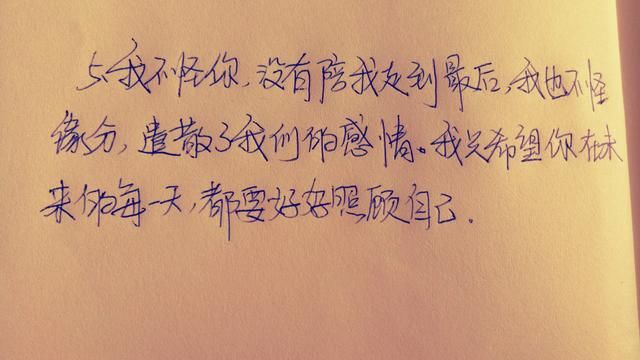 5、我不怪你,没有陪我走到最后,我也不怪
缘分,遣散了我们的感情。我只希望你在未
来的每一天,都要好好照顾自己.